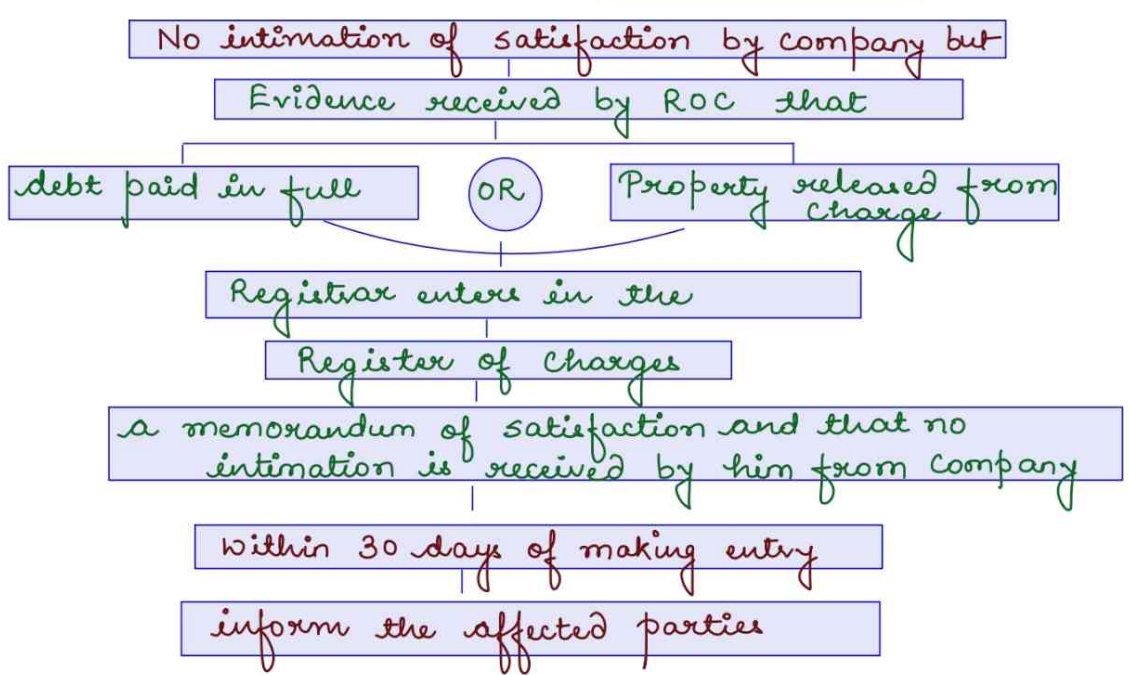 No intimation of satisfaction by company but
Evidence received by ROC that
debt paid in full
OR
Property released from
charge
Registrar enters in the
Register of charges
a memorandum of satisfaction and that no
intimation is received by him from company
within 30 days of making entry
inform the affected parties